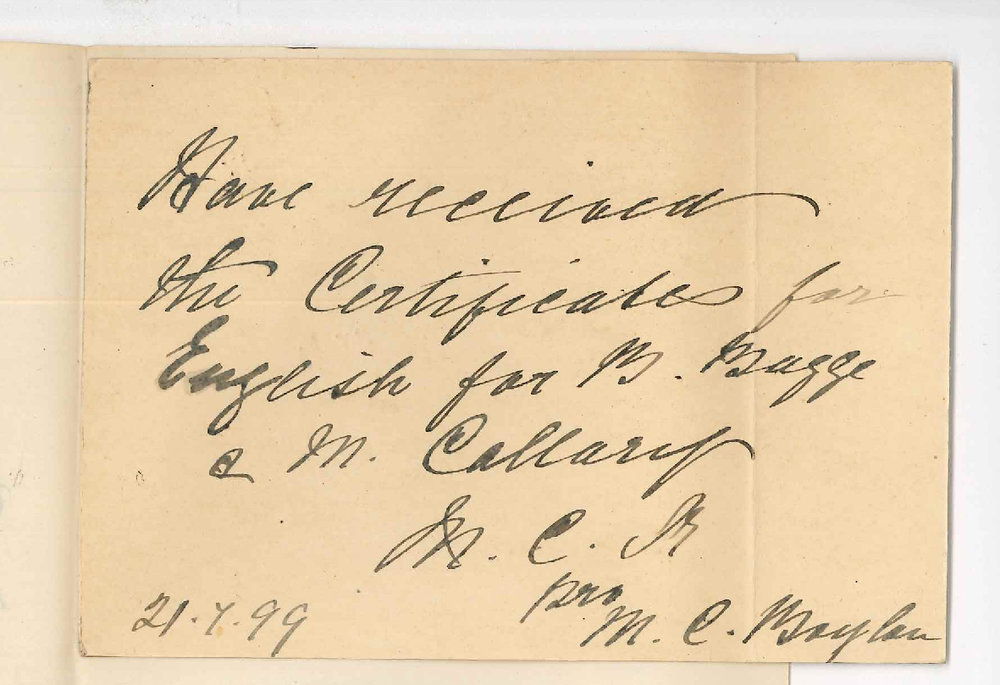 Have received
the Certificates for
English for B. Bagge
& M. Callary
M. C. R
pro M. C. Boylan
21.7.99